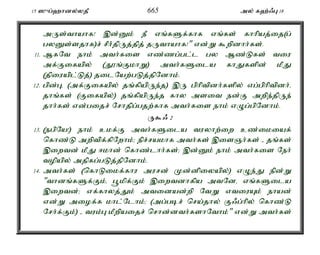 15 ஸுப்ஹானல்லதீ 665 அல் கஹ்ஃபு 18
அருள்வாயாக! இன்னும் நீ எங்களுக்காக எங்கள் காரியத்தை(ப்
பலனுள்ளதாக)ச் சீர்திருத்தித் தருவாயாக!” என்று கூறினார்கள்.
11. ஆகவே நாம் அவர்களை எண்ணப்பட்ட பல ஆண்டுகள் வரை
அக்குகையில் (தூங்குமாறு) அவர்களுடைய காதுகளின் மீது
(திரையிட்டுத்) தடையேற்படுத்தினோம்.
12. பின்பு (அக்குகையில் தங்கியிருந்த) இரு பிரிவினர்களில் எப்பிரிவினர்,
தாங்கள் (குகையில்) தங்கியிருந்த கால அளவை நன்கு அறிந்திருந்
தார்கள் என்பதைச் சோதிப்பதற்காக அவர்களை நாம் எழுப்பினோம்.
ருகூஃ 2
13. (நபியே) நாம் உமக்கு அவர்களுடைய வரலாற்றை உண்மையைக்
கொண்டு அறிவிக்கிறோம்; நிச்சயமாக அவர்கள் இளைஞர்கள் - தங்கள்
இறைவன் மீது ஈமான் கொண்டார்கள்; இன்னும் நாம் அவர்களை நேர்
வழியில் அதிகப்படுத்தினோம்.
14. அவர்கள் (கொடுமைக்கார அரசன் முன்னிலையில்) எழுந்து நின்று
“வானங்களுக்கும், பூமிக்கும் இறைவனாகிய அவனே, எங்களுடைய
இறைவன்; எக்காலத்தும் அவனையன்றி வேறு எவரையும் நாயன்
என்று அழைக்க மாட்டோம்; (அப்படிச் செய்தால் குஃப்ரில் கொண்டு
சேர்க்கும்) - வரம்பு மீறியதைச் சொன்னவர்களாவோம்” என்று அவர்கள்